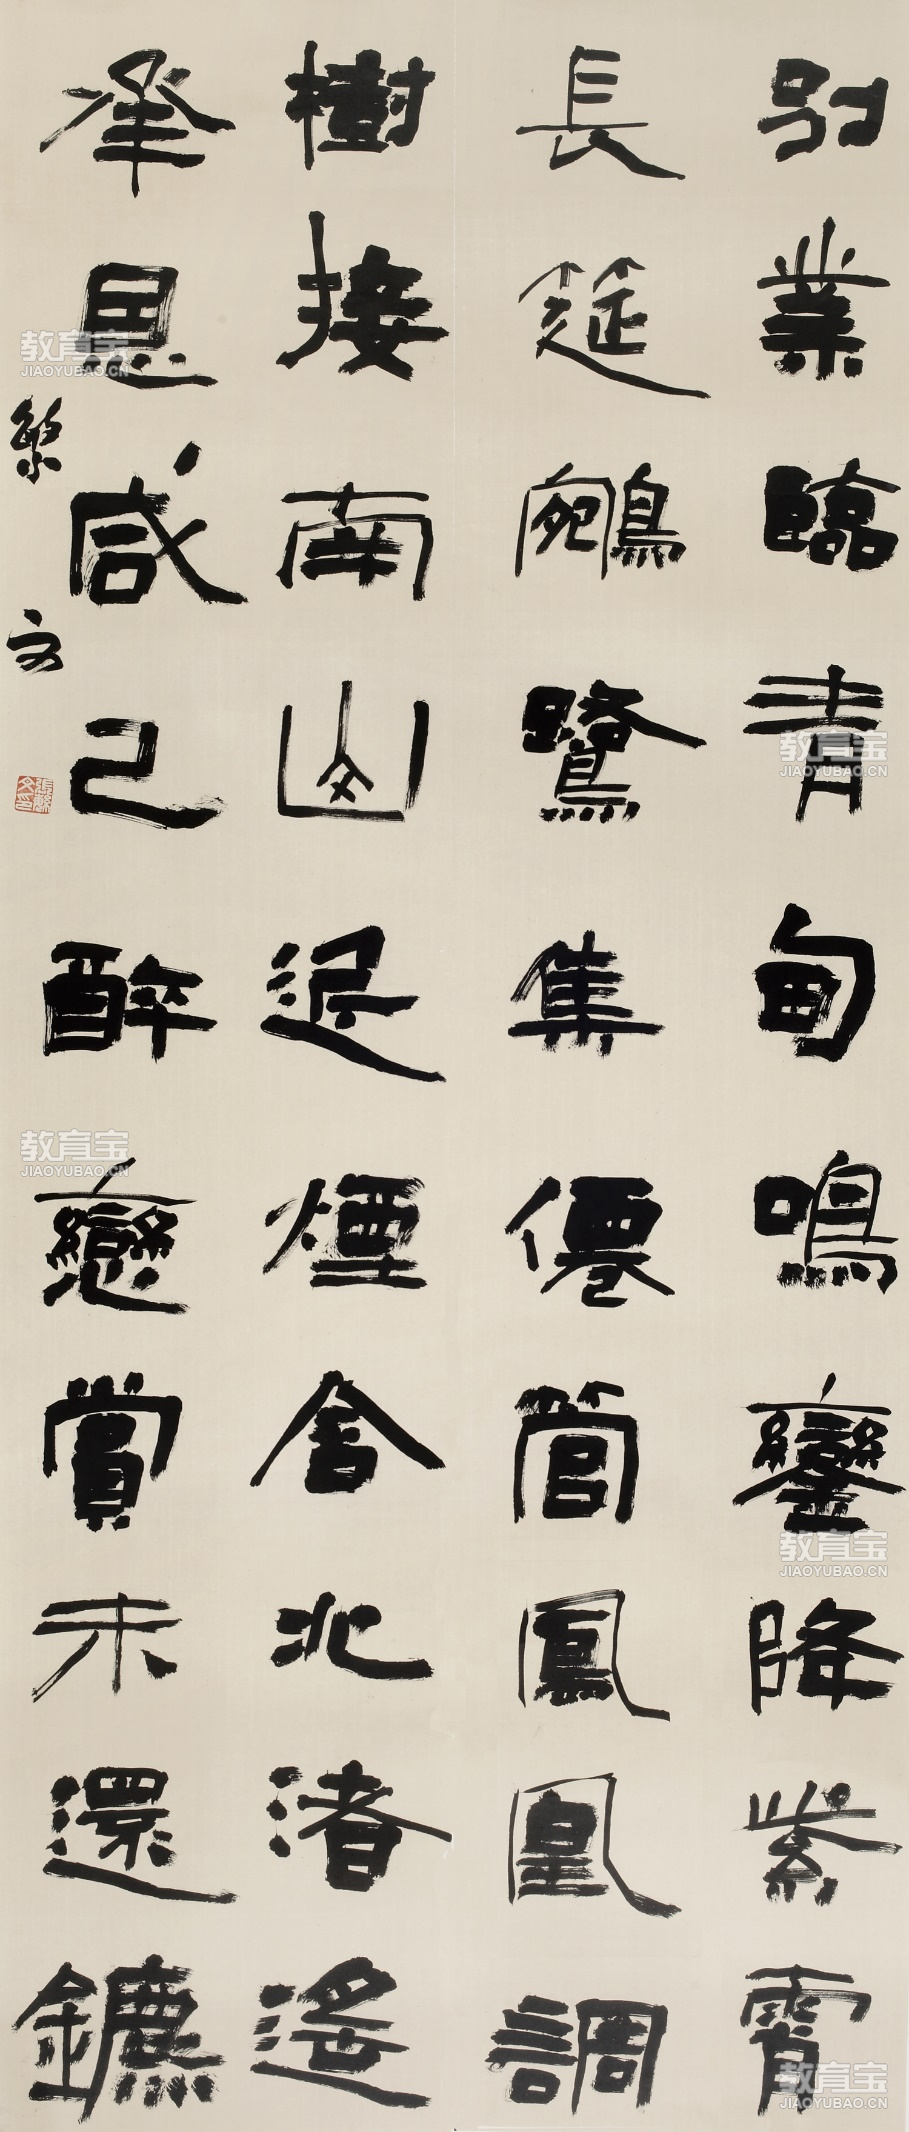 別業臨青甸鳴鑾降紫霄
長筵鵷鷺集僊管鳳凰調
樹接南山近煙含北渚遙
承恩咸已醉戀賞未還鑣
繁文
教育宝
JIAOYUBAO.CN
教育宝
JIAOYUBAO.CN
教育宝
JIAOYUBAO.CN
教育宝
JIAOYUBAO.CN
教育宝
JIAOYUBAO.CN